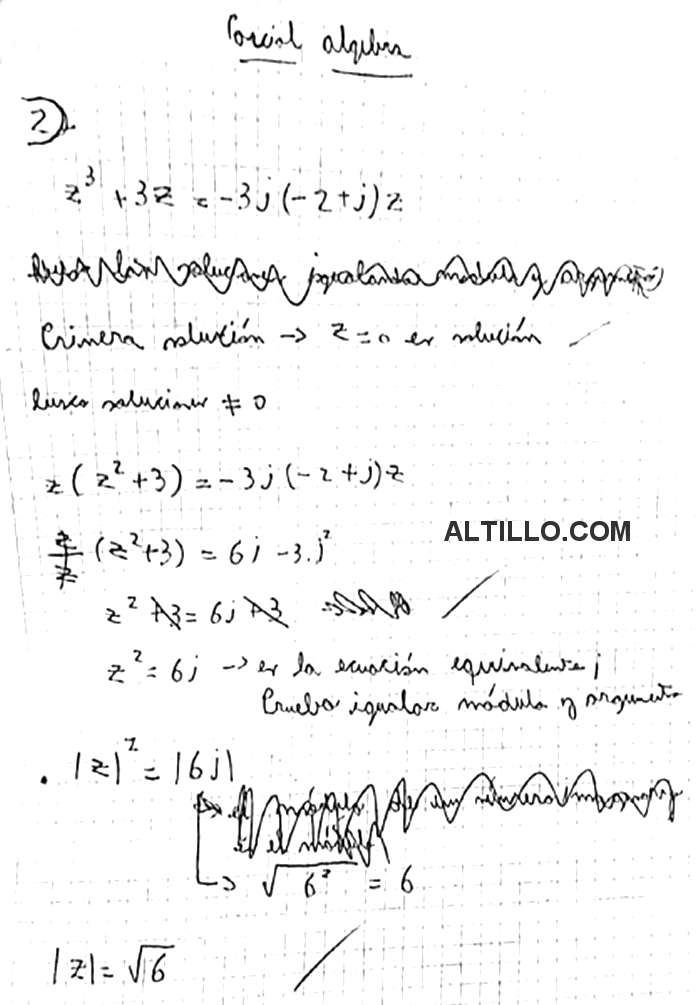 Parcial algebra
2)
z³ + 3z = -3j(-2+j)z
Primera solución → z=0 es solución
busco soluciones ≠ 0
z(z²+3) = -3j(-2+j)z
z/z (z²+3) = 6j - 3.j²
z² +3 = 6j +3
z² = 6j → es la ecuación equivalente;
Pruebo igualar módulo y argumento
ALTILLO.COM
. |z|² = |6j|
↳ √6² = 6
|z| = √6